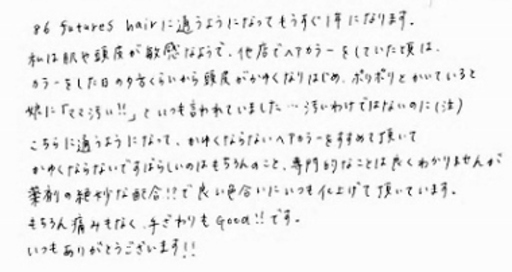 86 futures hairに通うようになってもうすぐ1年になります。
私は肌や頭皮が敏感なようで、他店でヘアカラーをしていた頃は、
カラーをした日の夕方くらいから頭皮がかゆくなりはじめ、ポリポリとかいていると
娘に「ママ汚い!!」といつも言われていました…汚いわけではないのに(泣)
こちらに通うようになって、かゆくならないヘアカラーをすすめて頂いて
かゆくならないですばらしいのはもちろんのこと、専門的なことは良くわかりませんが
薬剤の絶妙な配合!?で良い色合いにいつも仕上げて頂いています。
もちろん痛みもなく、手ざわりもGood!!です。
いつもありがとうございます!!